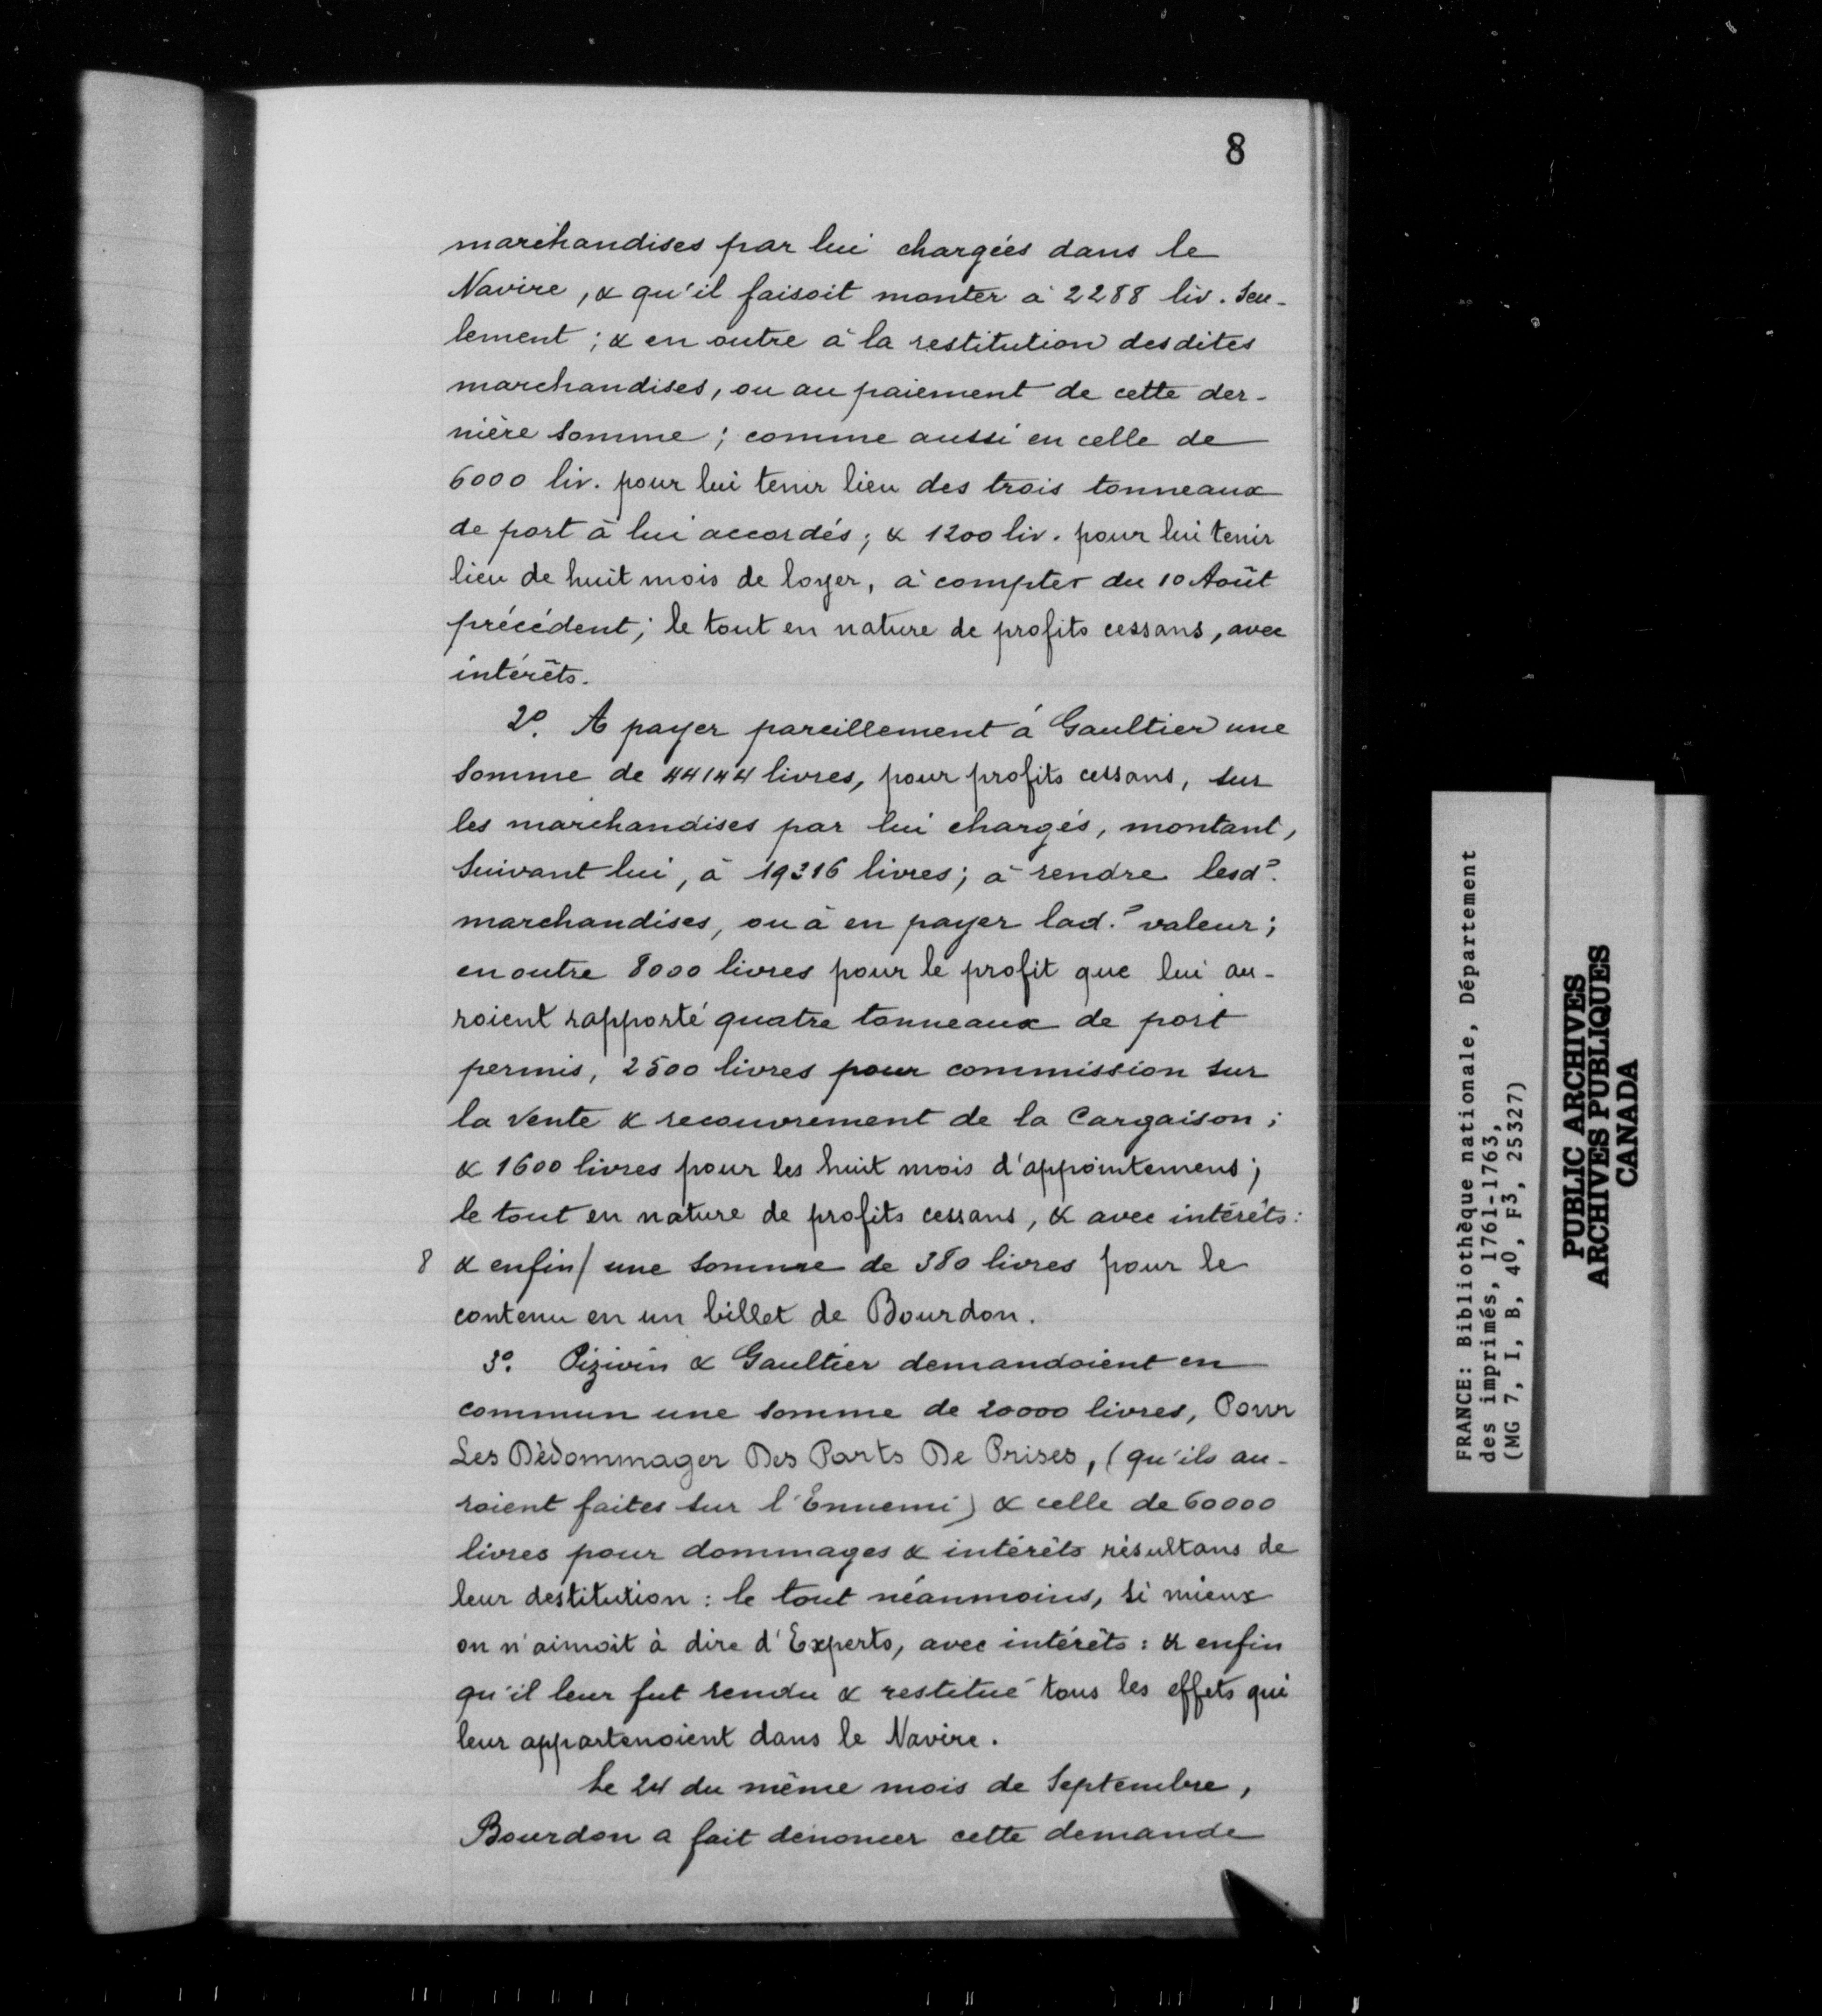 8
marchandises par lui chargées dans le
Navire, & qu'il faisoit monter à 2288 liv. seu-
lement ; & en outre à la restitution desdites
marchandises, ou au paiement de cette der-
nière somme ; comme aussi en celle de
6000 liv. pour lui tenir lieu des trois tonneaux
de port à lui accordés ; & 1200 liv. pour lui tenir
lieu de huit mois de loyer, à compter du 10 Août
précédent ; le tout en nature de profits cessans, avec
intérêts.
2º. A payer pareillement à Gaultier une
somme de 44144 livres, pour profits cessans, sur
les marchandises par lui chargés, montant,
suivant lui, à 19316 livres ; à rendre lesd.
marchandises, ou à en payer lad. valeur ;
en outre 8000 livres pour le profit que lui au-
roient rapporté quatre tonneaux de port
permis, 2500 livres pour commission sur
la vente & recouvrement de la Cargaison ;
& 1600 livres pour les huit mois d'appointemens ;
le tout en nature de profits cessans, & avec intérêts :
8 & enfin/ une somme de 380 livres pour le
contenu en un billet de Bourdon.
3º. Pizivin & Gaultier demandoient en
commun une somme de 20000 livres, Pour
Les Dédommager Des Parts De Prises, (qu'ils au-
roient faites sur l'Ennemi) & celle de 60000
livres pour dommages & intérêts résultans de
leur destitution : le tout néanmoins, si mieux
on n'aimoit à dire d'Experts, avec intérêts : & enfin
qu'il leur fut rendu & restitué tous les effets qui
leur appartenoient dans le Navire.
Le 24 du même mois de Septembre,
Bourdon a fait dénoncer cette demande
FRANCE: Bibliothèque nationale, Département
des imprimés, 1761-1763,
(MG 7, I, B, 40, F3, 25327)
PUBLIC ARCHIVES
ARCHIVES PUBLIQUES
CANADA